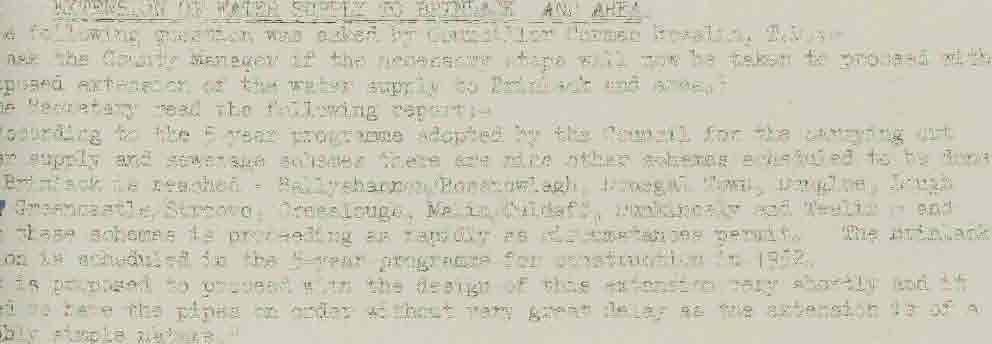 EXTENSION OF WATER SUPPLY TO BRINLACK AND AREA.
e following question was asked by Councillor Cormac Breslin, T.D.:-
ask the County Manager if the necessary steps will now be taken to proceed with
posed extension of the water supply to Brinlack and area."
e Secretary read the following report:-
ccording to the 5 year programme adopted by the Council for the carrying out
er supply and sewerage schemes there are nine other schemes scheduled to be done
Brinlack is reached - Ballyshannon/Rossnowlagh, Donegal Town, Dungloe, Lough
Greencastle/Stroove, Creeslough, Malin/Culdaff, Dunkineely and Teelin - and
these schemes is proceeding as rapidly as circumstances permit. The Brinlack
on is scheduled in the 5-year programme for construction in 1952.
is proposed to proceed with the design of this extension very shortly and it
to have the pipes on order without very great delay as the extension is of a
bly simple nature."